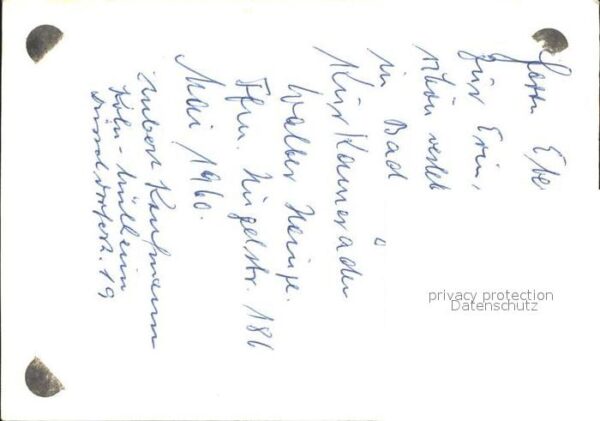 Herrn
Zur Erin,
schön verleb
in Bad
Kur Kameraden
Walter Heinze.
Ffm. Hügelstr. 186
Mai 1960.
Hubert Kaufmann
Köln-Mülheim
19
privacy protection
Datenschutz